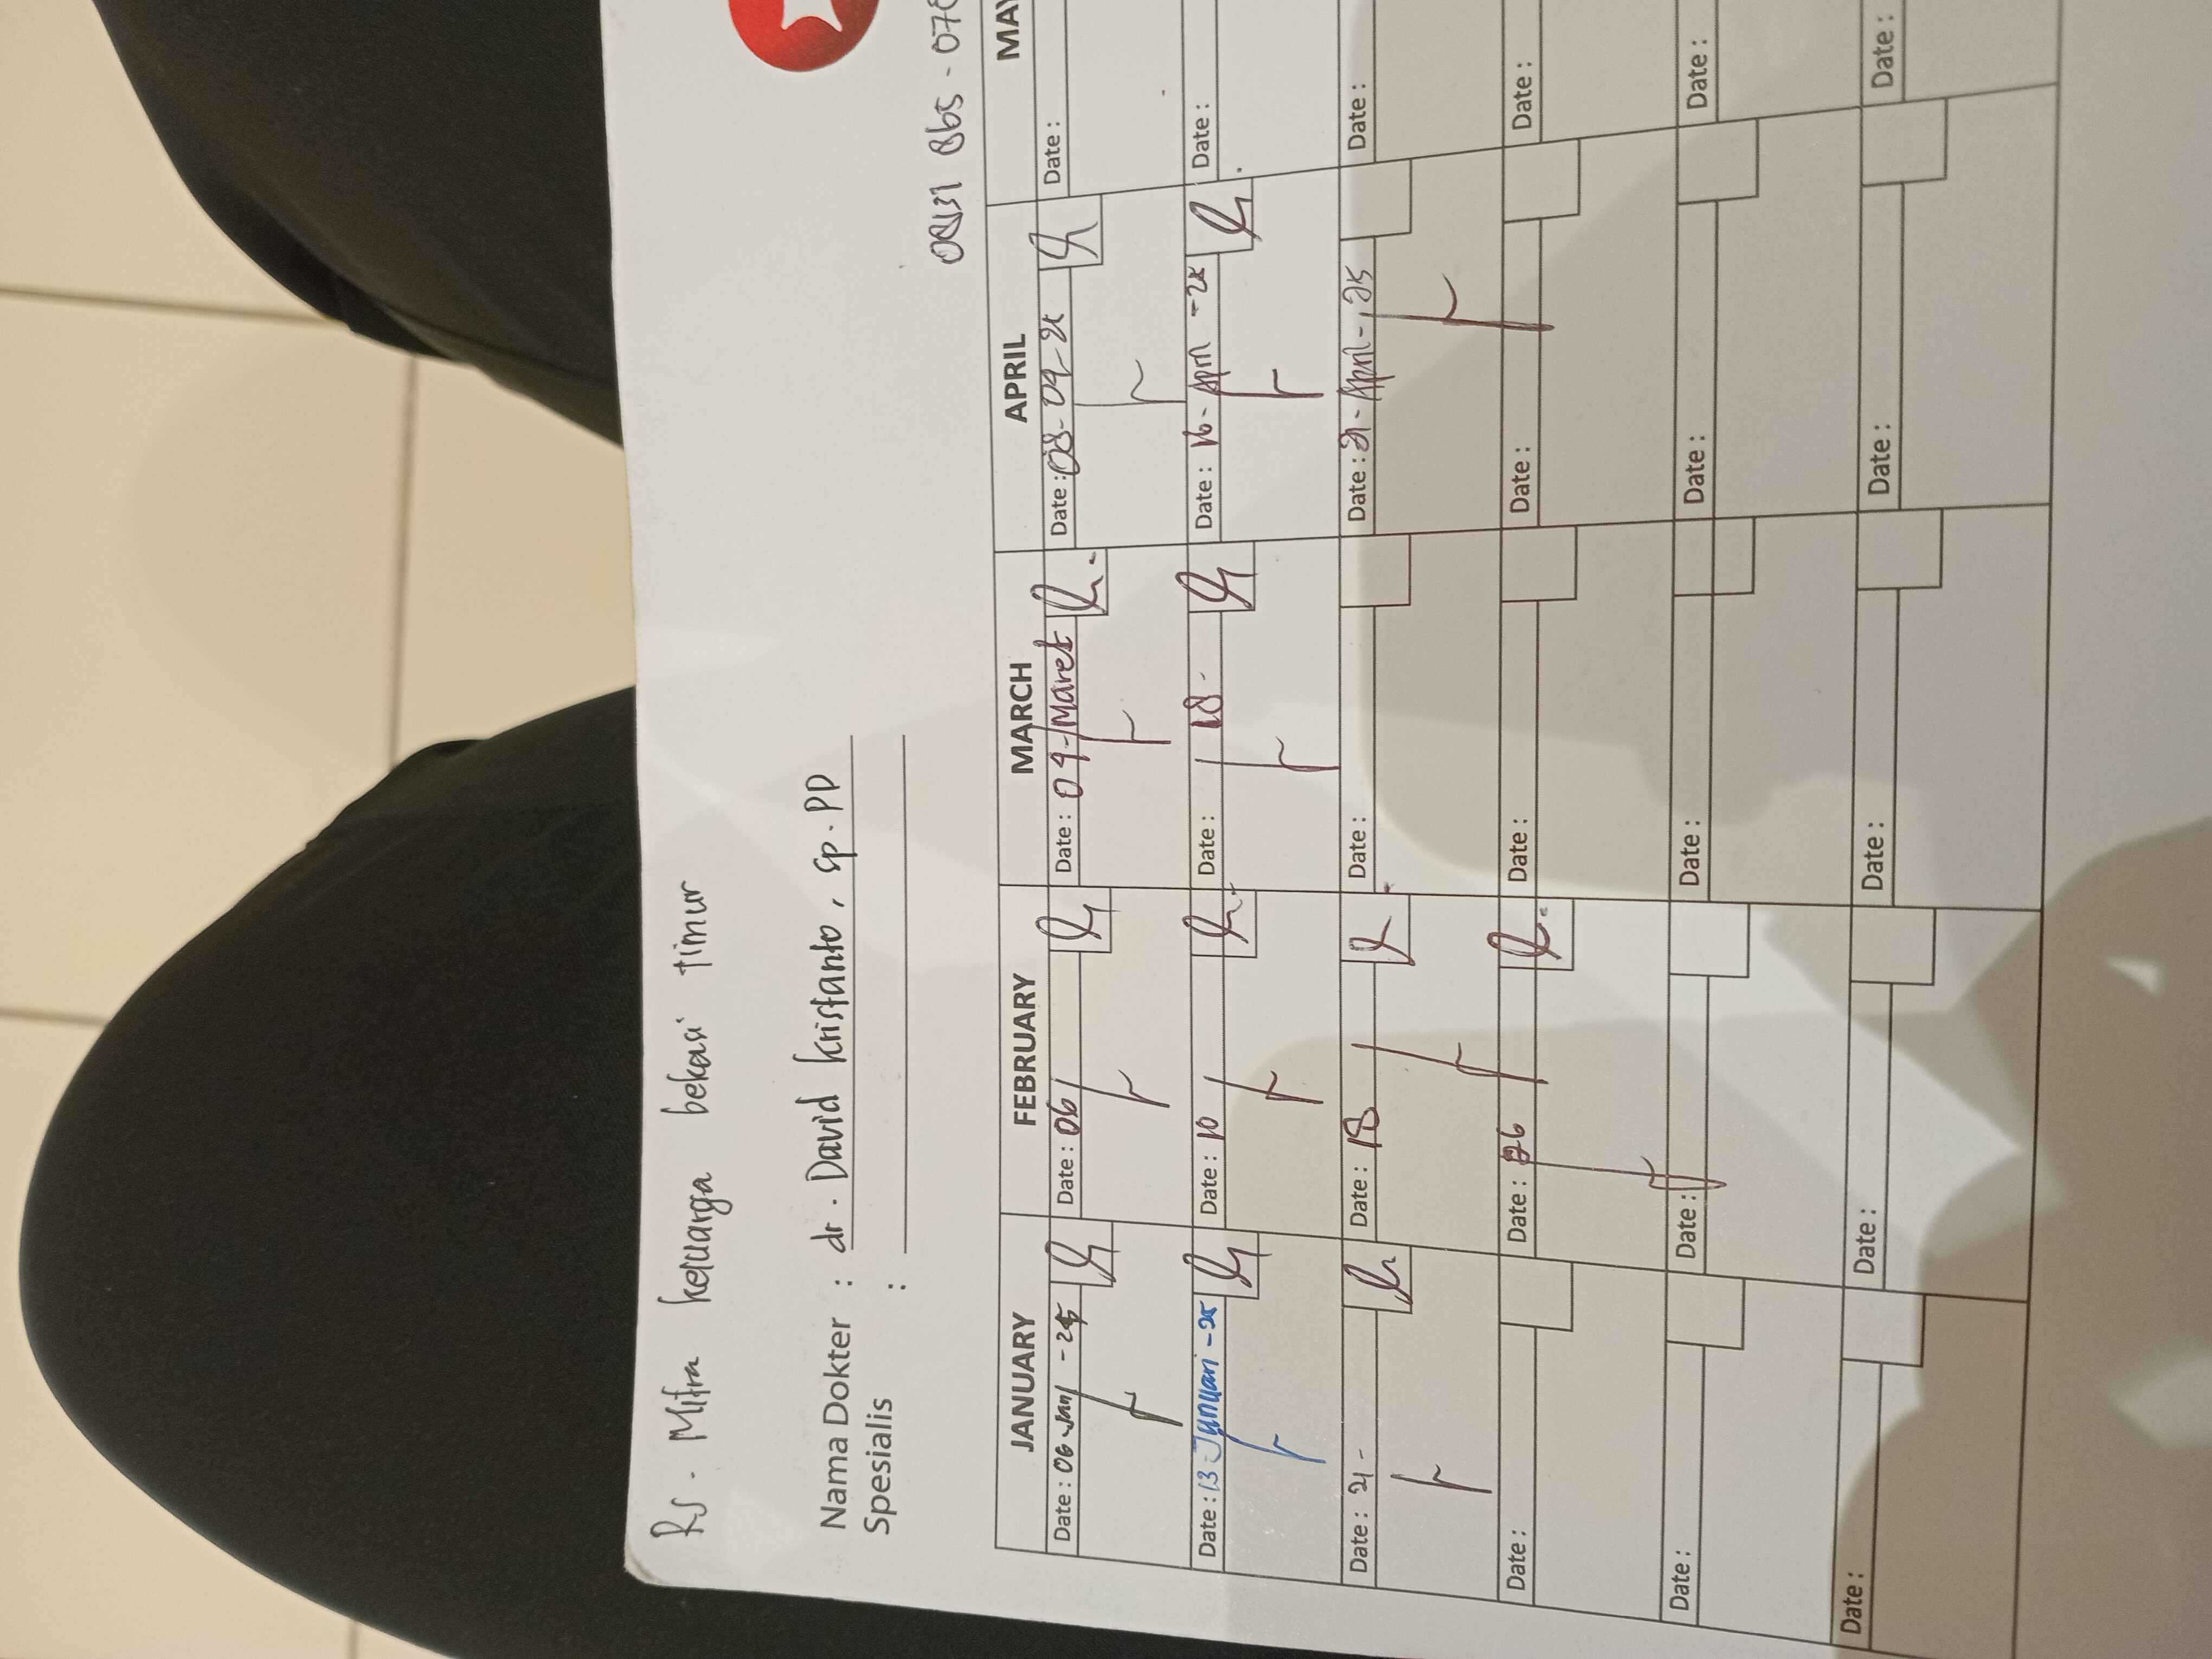 RS. Mitra keluarga bekasi timur
Nama Dokter : dr. David Kristanto, Sp. PD
Spesialis :
JANUARY FEBRUARY MARCH APRIL MAY
Date : 06 Jan -25 Date : 06 Date : 04-Maret Date : 08-04-25 Date :
Date : 13 Januari -25 Date : 10 Date : 18- Date : 16- April -25 Date :
Date : 21- Date : 18 Date : Date : 21-April-,25 Date :
Date : Date : 26 Date : Date : Date :
Date : Date : Date : Date : Date :
Date : Date : Date : Date : Date :